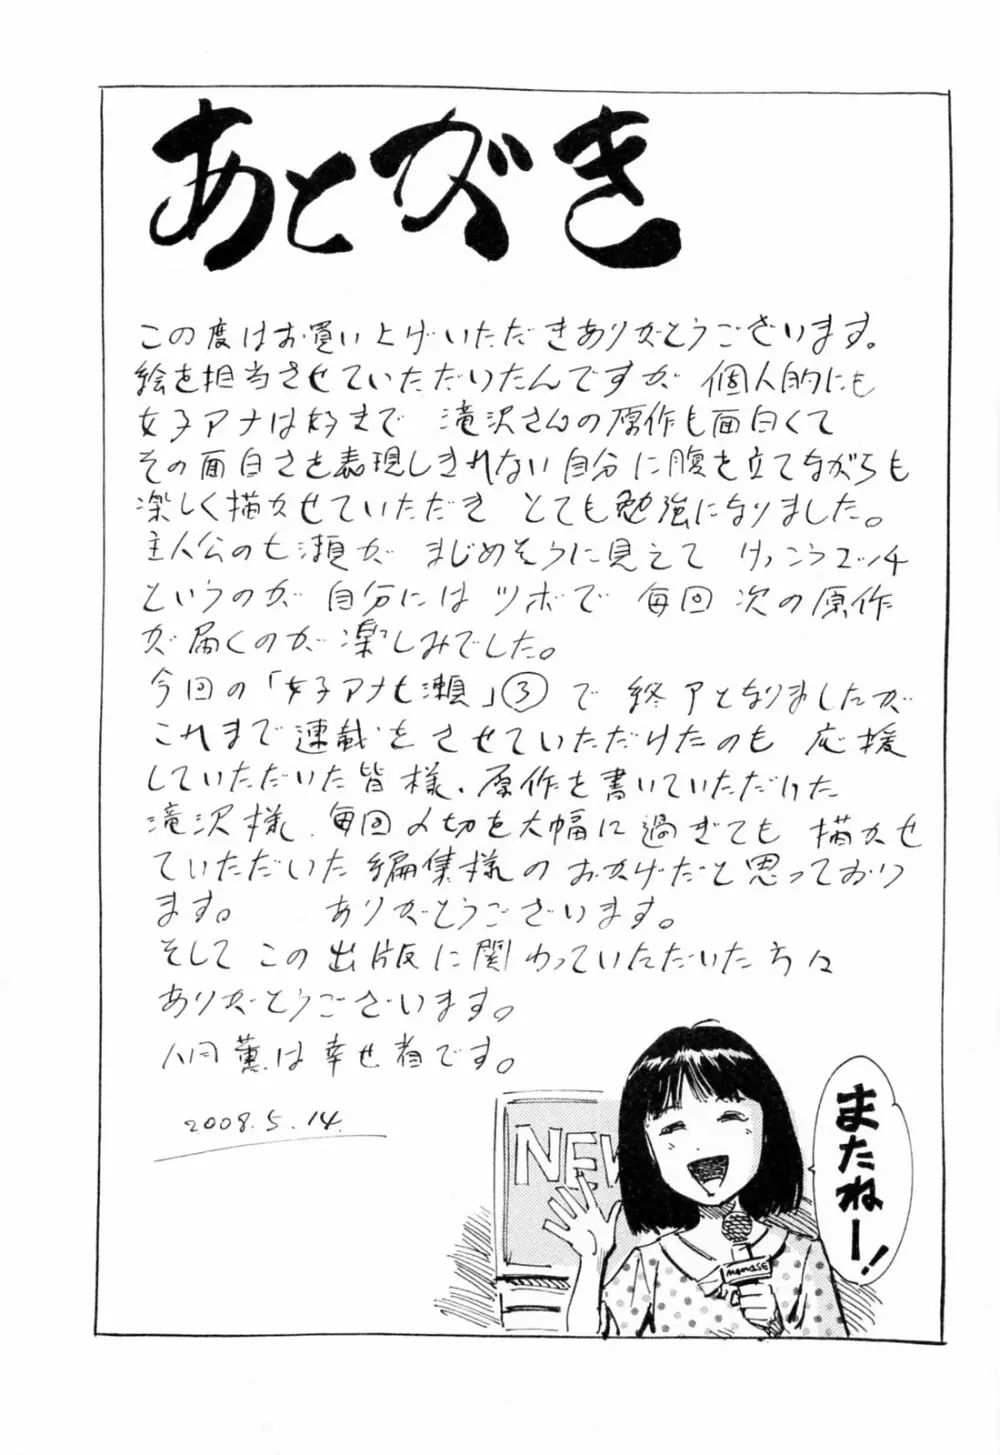 あとがき
この度はお買い上げいただきありがとうございます。
絵を担当させていただいたんですが 個人的にも
女子アナは好きで 滝沢さんの原作も面白くて
その面白さを表現しきれない自分に腹を立てながらも
楽しく描かせていただき とても勉強になりました。
主人公の七瀬が まじめそうに見えて けっこうエッチ
というのが 自分には ツボで 毎回 次の原作
が届くのが楽しみでした。
今回の「女子アナ七瀬」③で 終了となりましたが
これまで連載をさせていただけたのも 応援
していただいた皆様、原作を書いていただけた
滝沢様、毎回〆切を大幅に過ぎても 描かせ
ていただいた編集様のおかげだと思っており
ます。 ありがとうございます。
そして この出版に関わっていただいた方々
ありがとうございます。
八月薫は幸せ者です。
2008.5.14.
NEW
またねー!